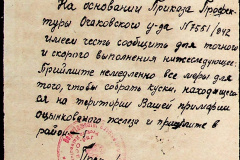 На основании Приказа Префек-
туры Очаковского у-да N 7551/942
имеем честь сообщить для точного
и скорого выполнения нижеследующее:
Примите немедленно все меры для
того, чтобы собрать куски, находящие-
ся на територии Вашей примарии
оцинкованого железа и пришлите в
район